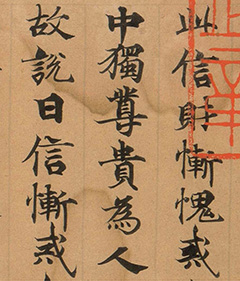 此信財慚愧戒
中獨尊貴為人
故說曰信慚戒